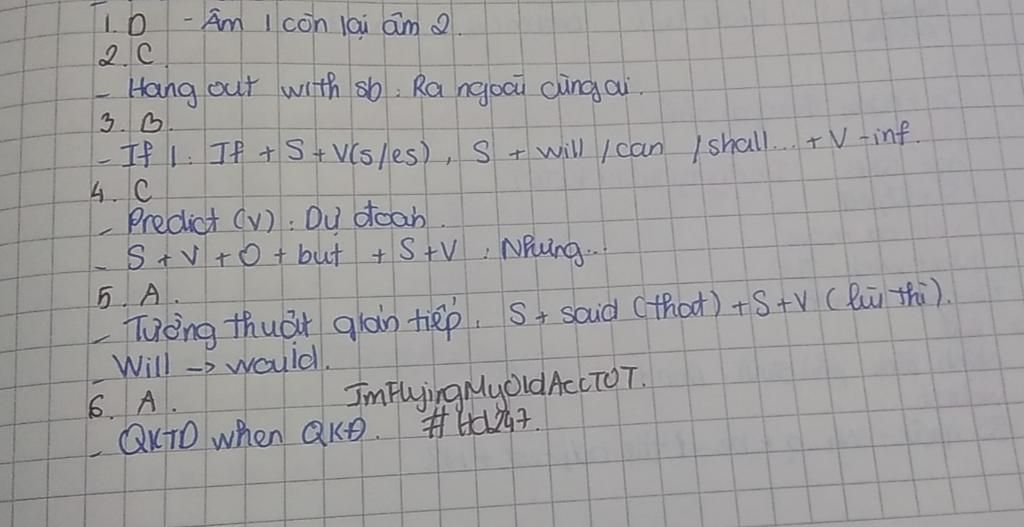 1. D - Âm 1 còn lại âm 2.
2. C
- Hang out with sb: Ra ngoài cùng ai.
3. B.
- If 1: If + S + V(s/es), S + will / can / shall... + V-inf.
4. C
- Predict (v): Dự đoán.
- S + V + O + but + S + V: Nhưng...
5. A.
- Tường thuật gián tiếp: S + said (that) + S + V (lùi thì).
- Will -> would.
6. A. ImFlyingMyOldAccTOT.
- QKTD when QKĐ. #Hd247.